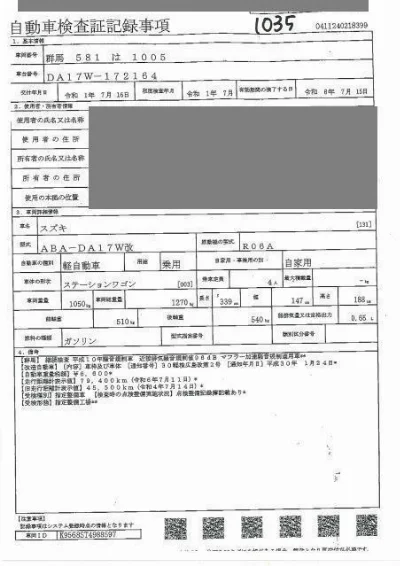 自動車検査証記録事項
1035
0411240218399
1. 基本情報
車両番号 群馬 581 は 1005
車台番号 DA17W-172164
交付年月日 令和 1年 7月 16日 初度検査年月 令和 1年 7月 有効期間の満了する日 令和 8年 7月 15日
2. 使用者・所有者情報
使用者の氏名又は名称
使用者の住所
所有者の氏名又は名称
所有者の住所
使用の本拠の位置
3. 車両詳細情報
車名 スズキ [131]
型式 ABA-DA17W改 原動機の型式 R06A
自動車の種別 軽自動車 用途 乗用 自家用・事業用の別 自家用
車体の形状 ステーションワゴン [003] 乗車定員 4人 最大積載量 -kg
車両重量 1050kg 車両総重量 1270kg 長さ 339cm 幅 147cm 高さ 188cm
前軸重 510kg 後軸重 540kg 総排気量又は定格出力 0.65 L
燃料の種類 ガソリン 型式指定番号 類別区分番号
4. 備考
[群馬] 継続検査 平成10年騒音規制車 近接排気騒音規制値96dB マフラー加速騒音規制適用車**
[自動車重量税額] ¥6,600*
[走行距離計表示値] 79,400km (令和6年7月11日)*
[旧走行距離計表示値] 45,300km (令和4年7月14日)*
[受検種別] 指定整備車 [検査時の点検整備実施状況] 点検整備記録簿記載あり*
[受検形態] 指定整備工場**
[注意事項]
記録事項はシステム登録時点の情報となります
車両ID K9568574988597